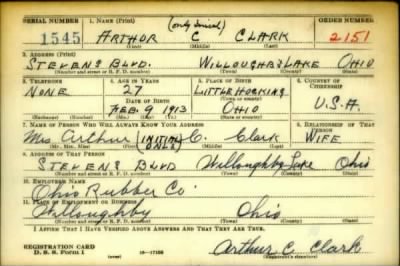 SERIAL NUMBER 1. NAME (Print) (only inicial) ORDER NUMBER
1545 ARTHOR C CLARK 2151
(First) (Middle) (Last)
3. ADDRESS (Print)
STEVENS BLVD. WILLOUGHBY LAKE OHIO
(Number and street or R. F. D. number) (Town) (County) (State)
4. TELEPHONE 5. AGE IN YEARS 6. PLACE OF BIRTH COUNTRY OF CITIZENSHIP
NONE 27 LITTLE HOCKING
DATE OF BIRTH (Town or county)
FEB. 9 1913 OHIO U.S.A.
(Exchange) (Number) (Mo.) (Day) (Yr.) (State or country)
7. NAME OF PERSON WHO WILL ALWAYS KNOW YOUR ADDRESS RELATIONSHIP OF THAT PERSON
Mrs Arthur (INITIAL ONLY) C. Clark WIFE
(Mr., Mrs., Miss) (First) (Middle) (Last)
9. ADDRESS OF THAT PERSON
STEVENS BLVD Willoughby Lake Ohio
(Number and street or R. F. D. number) (Town) (County) (State)
10. EMPLOYER'S NAME
Ohio Rubber Co.
11. PLACE OF EMPLOYMENT OR BUSINESS
Willoughby Ohio
(Number and street or R. F. D. number) (Town) (County) (State)
I AFFIRM THAT I HAVE VERIFIED ABOVE ANSWERS AND THAT THEY ARE TRUE.
REGISTRATION CARD
D. S. S. Form 1 16—17105 Arthur C. Clark
(Registrant's signature)